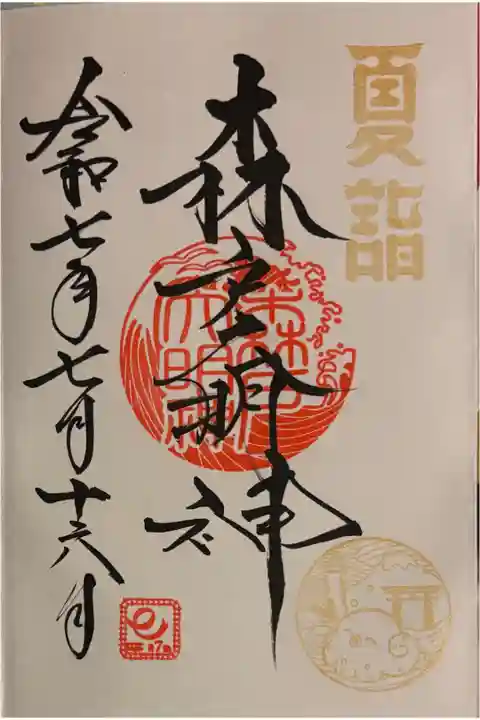 夏詣
森戸大明神
令和七年七月十六日
森戸
大明神